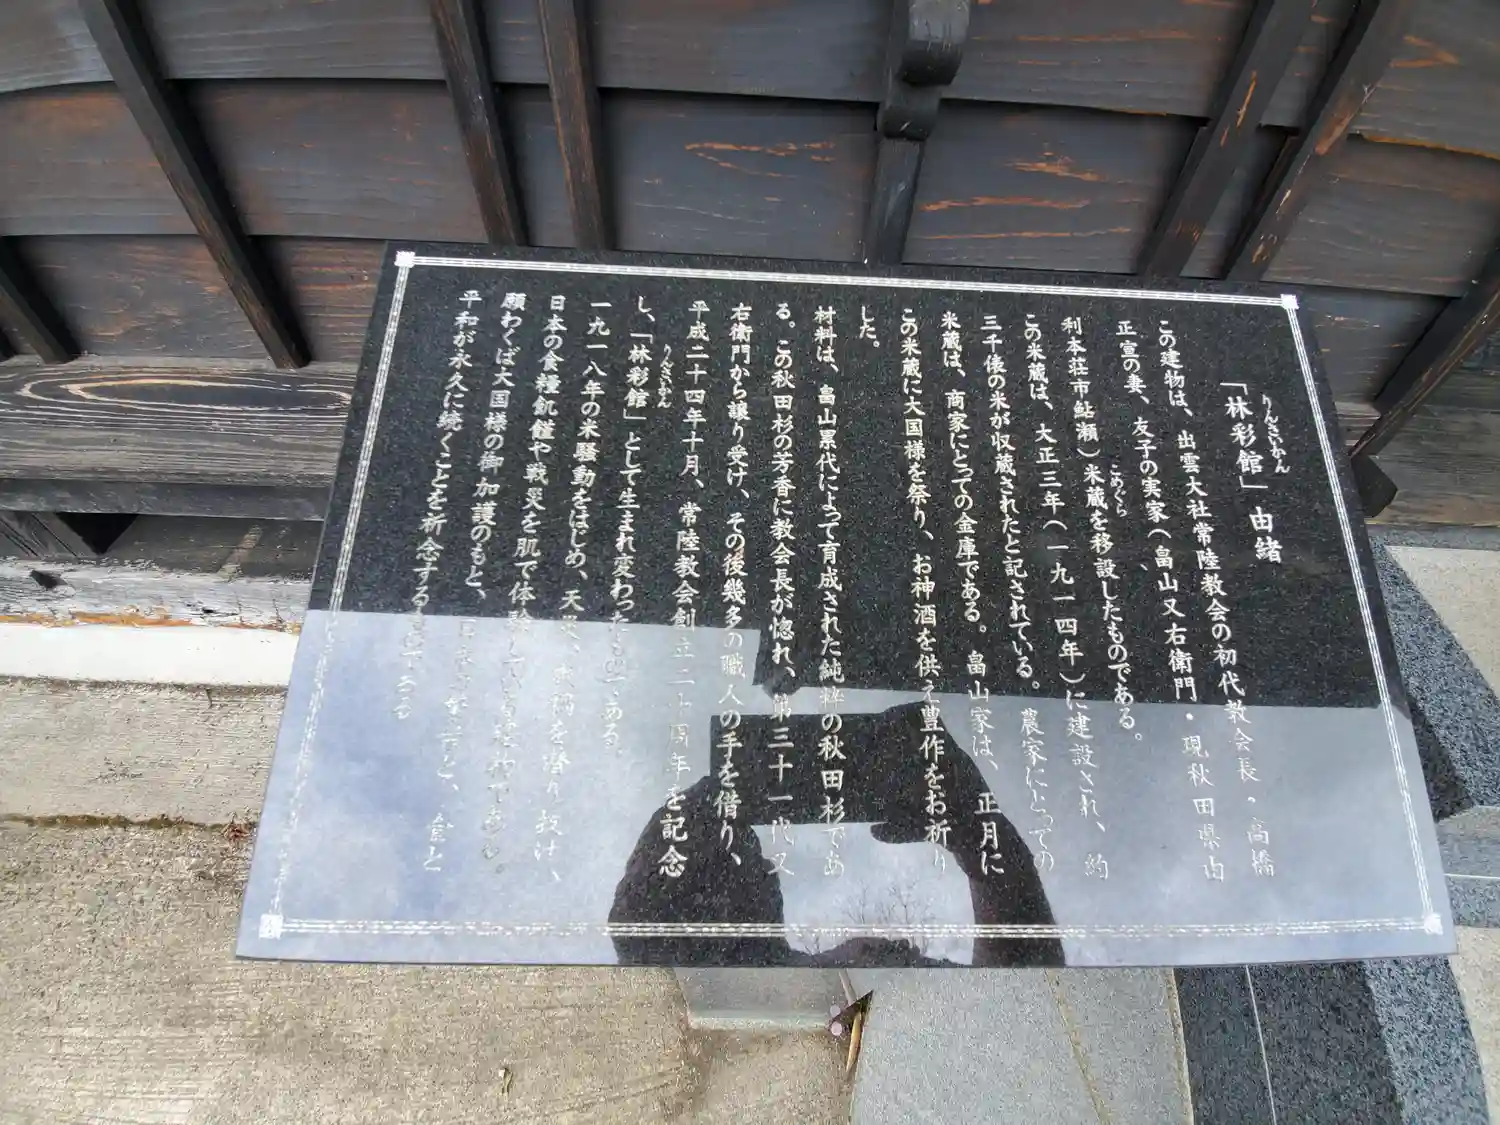 「林彩館」由緒
りんさいかん
この建物は、出雲大社常陸教会の初代教会長・高橋
正宣の妻、友子の実家(畠山又右衛門・現秋田県由
利本荘市鮎瀬)米蔵を移設したものである。
こめぐら
この米蔵は、大正三年(一九一四年)に建設され、約
三千俵の米が収蔵されたと記されている。農家にとっての
米蔵は、商家にとっての金庫である。畠山家は、正月に
この米蔵に大国様を祭り、お神酒を供え豊作をお祈り
した。
材料は、畠山累代によって育成された純粋の秋田杉であ
る。この秋田杉の芳香に教会長が惚れ、第三十一代又
右衛門から譲り受け、その後幾多の職人の手を借り、
平成二十四年十月、常陸教会創立二十周年を記念
し、「林彩館」として生まれ変わったものである。
りんさいかん
一九一八年の米騒動をはじめ、天災、を潜り抜け、
日本の食糧飢饉や戦災を肌で体験して
願わくば大国様の御加護のもと、と、
平和が永久に続くことを祈念する